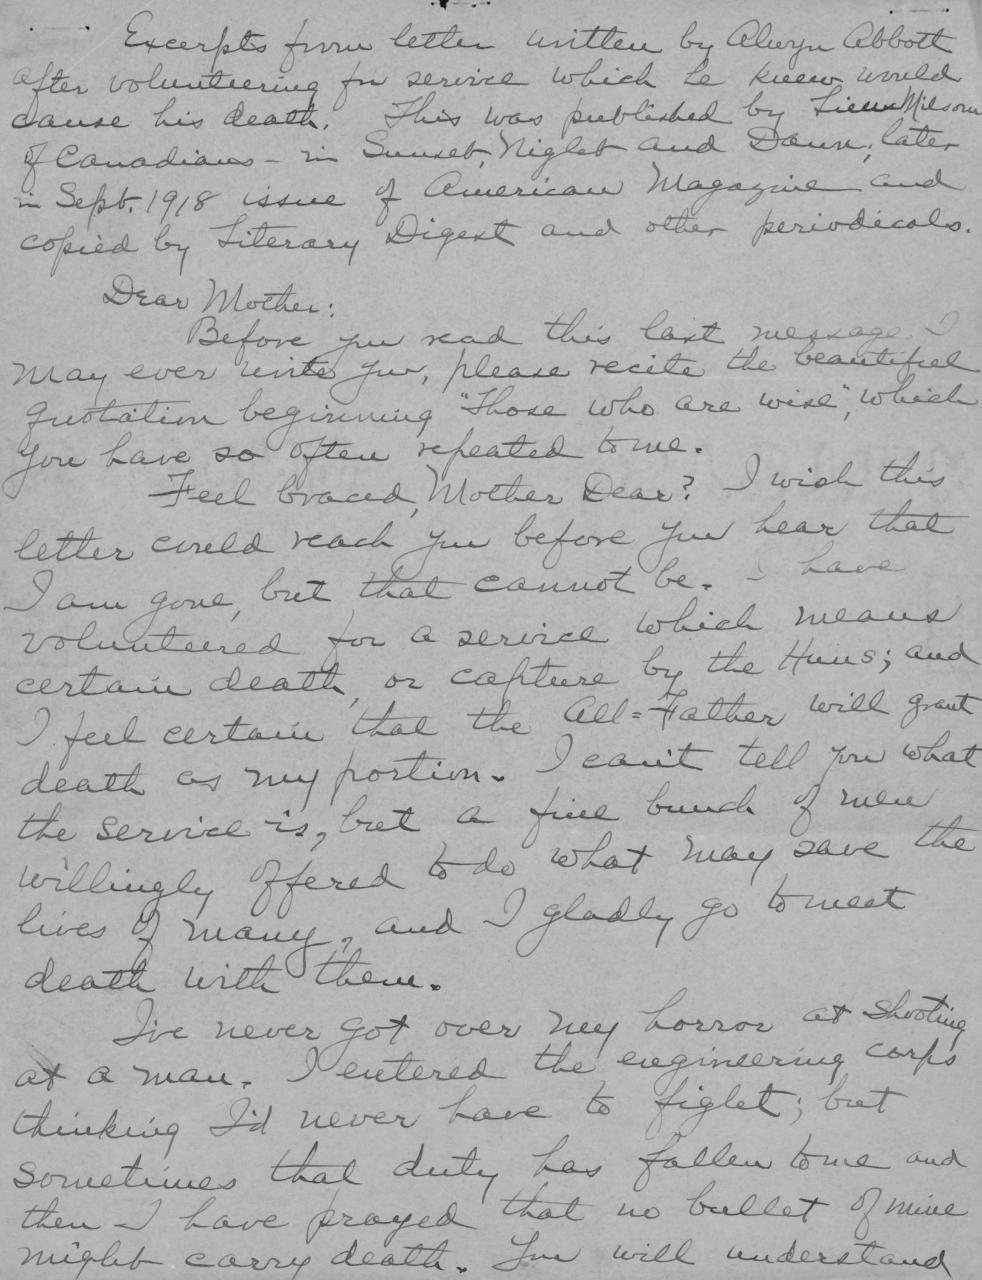 Excerpts from letter written by Alwyn Abbott
after volunteering for service which he knew would
cause his death. This was published by Lieut Milsom
of Canadians - in Sunset, Night and Dawn, later
in Sept. 1918 issue of American Magazine and
copied by Literary Digest and other periodicals.
Dear Mother:
Before you read this last message I
may ever write you, please recite the beautiful
quotation beginning "Those who are wise", which
you have so often repeated to me.
Feel braced, Mother Dear? I wish this
letter could reach you before you hear that
I am gone, but that cannot be. I have
volunteered for a service which means
certain death, or capture by the Huns; and
I feel certain that the All=Father will grant
death as my portion. I can't tell you what
the service is, but a fine bunch of men
willingly offered to do what may save the
lives of many, and I gladly go to meet
death with them.
I've never got over my horror at shooting
at a man. I entered the engineering corps
thinking I'd never have to fight; but
sometimes that duty has fallen to me and
then I have prayed that no bullet of mine
might carry death. You will understand